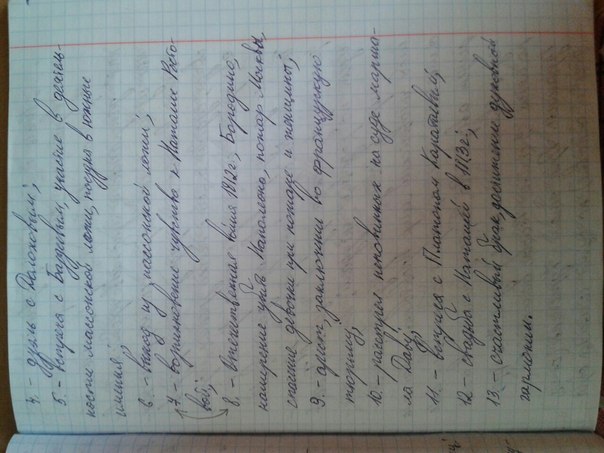 4. – дуэль с Долоховым;
5. – встреча с Баздеевым, участие в деятель-
ности масонской ложи, поездка в южные
имения;
6 – выход из масонской ложи;
7 – возникновение чувства к Наталье Росто-
вой;
8. – Отечественная война 1812г., Бородино,
намерение убить Наполеона, пожар Москвы,
спасение девочки при пожаре и женщины;
9. – арест, заключение во французскую
тюрьму;
10. – на суде марша-
ла Даву;
11. – встреча с Платоном Каратаевым;
12 – свадьба с Наташей в 1813г;
13. – счастливый брак, достижение духовной
гармонии.